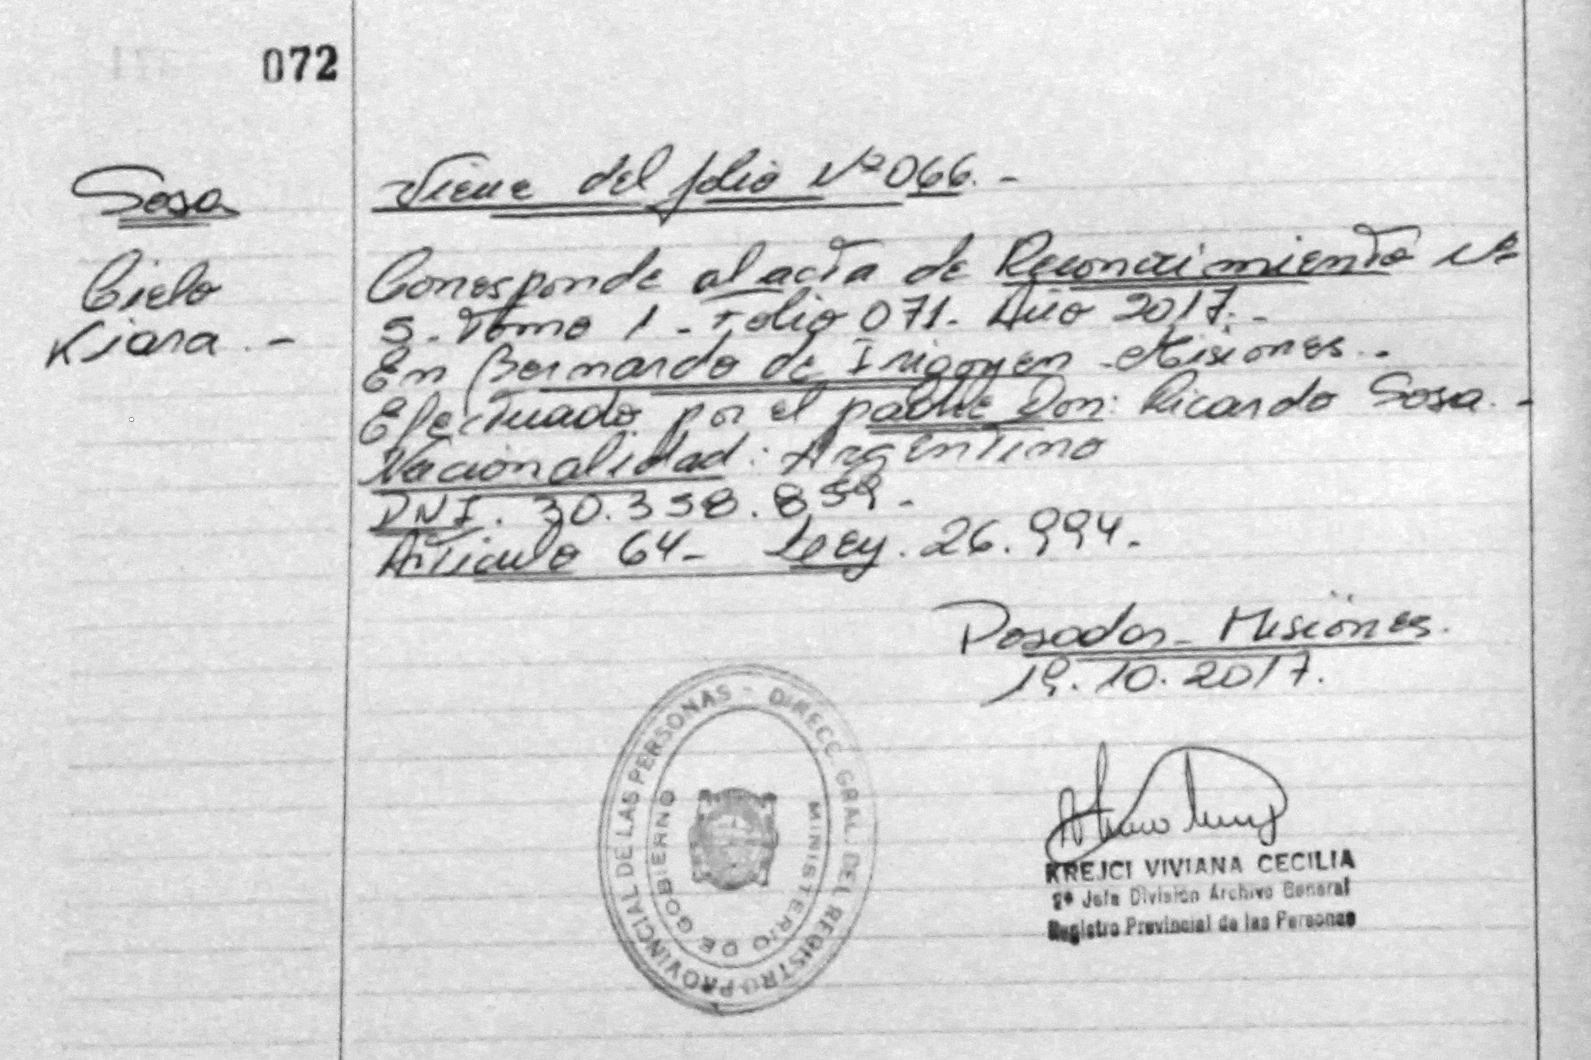 072
Sosa
Cielo
Kiara.-
Viene del folio Nº 066.-
Corresponde al acta de Reconocimiento Nº
5. Tomo 1 - Folio 071. Año 2017.-
En Bernardo de Irigoyen - Misiones.-
Efectuado por el padre Don: Ricardo Sosa.-
Nacionalidad: Argentino
DNI. 30.358.859.-
Artículo 64- Ley. 26.994.-
Posadas - Misiones.
19.10.2017.
DIRECC. GRAL. DEL REGISTRO PROVINCIAL DE LAS PERSONAS -
MINISTERIO DE GOBIERNO
KREJCI VIVIANA CECILIA
2ª Jefa División Archivo General
Registro Provincial de las Personas